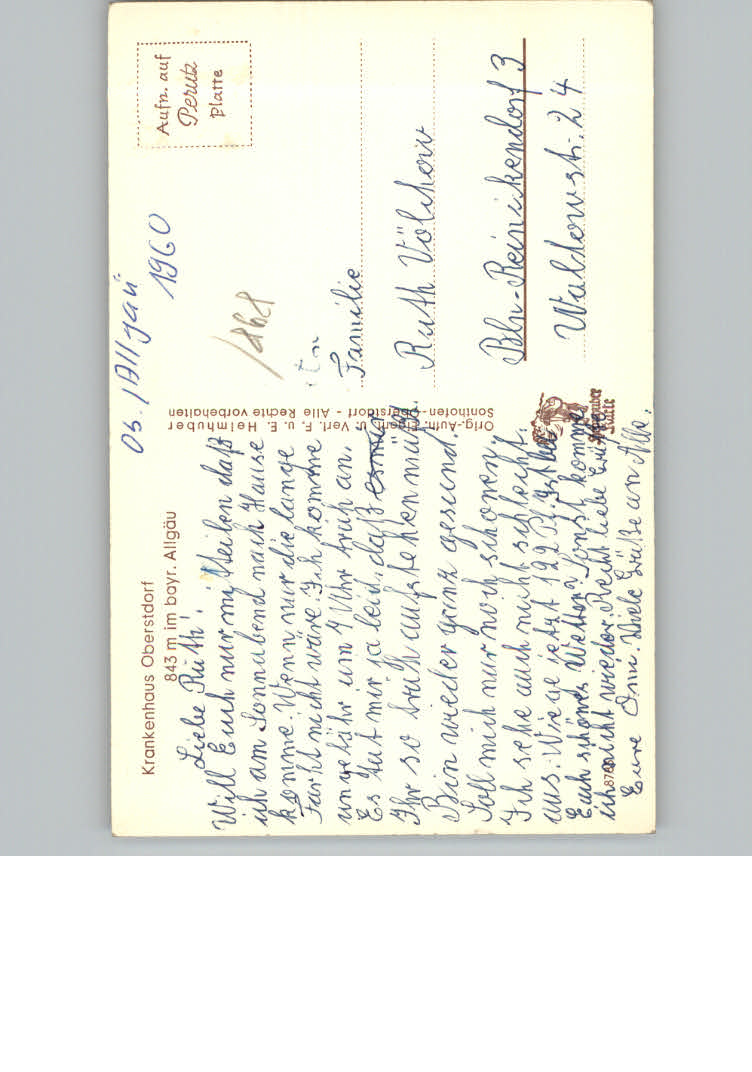 Krankenhaus Oberstdorf
843 m im bayr. Allgäu
Liebe Ruth!
Will Euch nur mitteilen daß
ich am Sonnabend nach Hause
komme. Wenn nur die lange
Fahrt nicht wäre. Ich komme
ungefähr um 4 Uhr früh an.
Es tut mir ja leid, daß
Ihr so früh aufstehen müßt.
Bin wieder ganz gesund.
Soll mich nur noch schonen.
Ich sehe auch nicht schlecht
aus. Wiege jetzt 122 Pf.
Euch schönes Wetter. Sonst komme
ich nicht wieder. Recht liebe Grüße
Eure Omi. Viele Grüße an Alle.
Orig.-Aufn. Eigent. u. Verl. F. u. E. Heimhuber
Sonthofen-Oberstdorf - Alle Rechte vorbehalten
Heimhuber
Karte
Ob. / Allgäu
1960
Aufn. auf
Perutz
Platte
Familie
Ruth Völchow
Bln-Reinickendorf 3
Waldowstr. 24